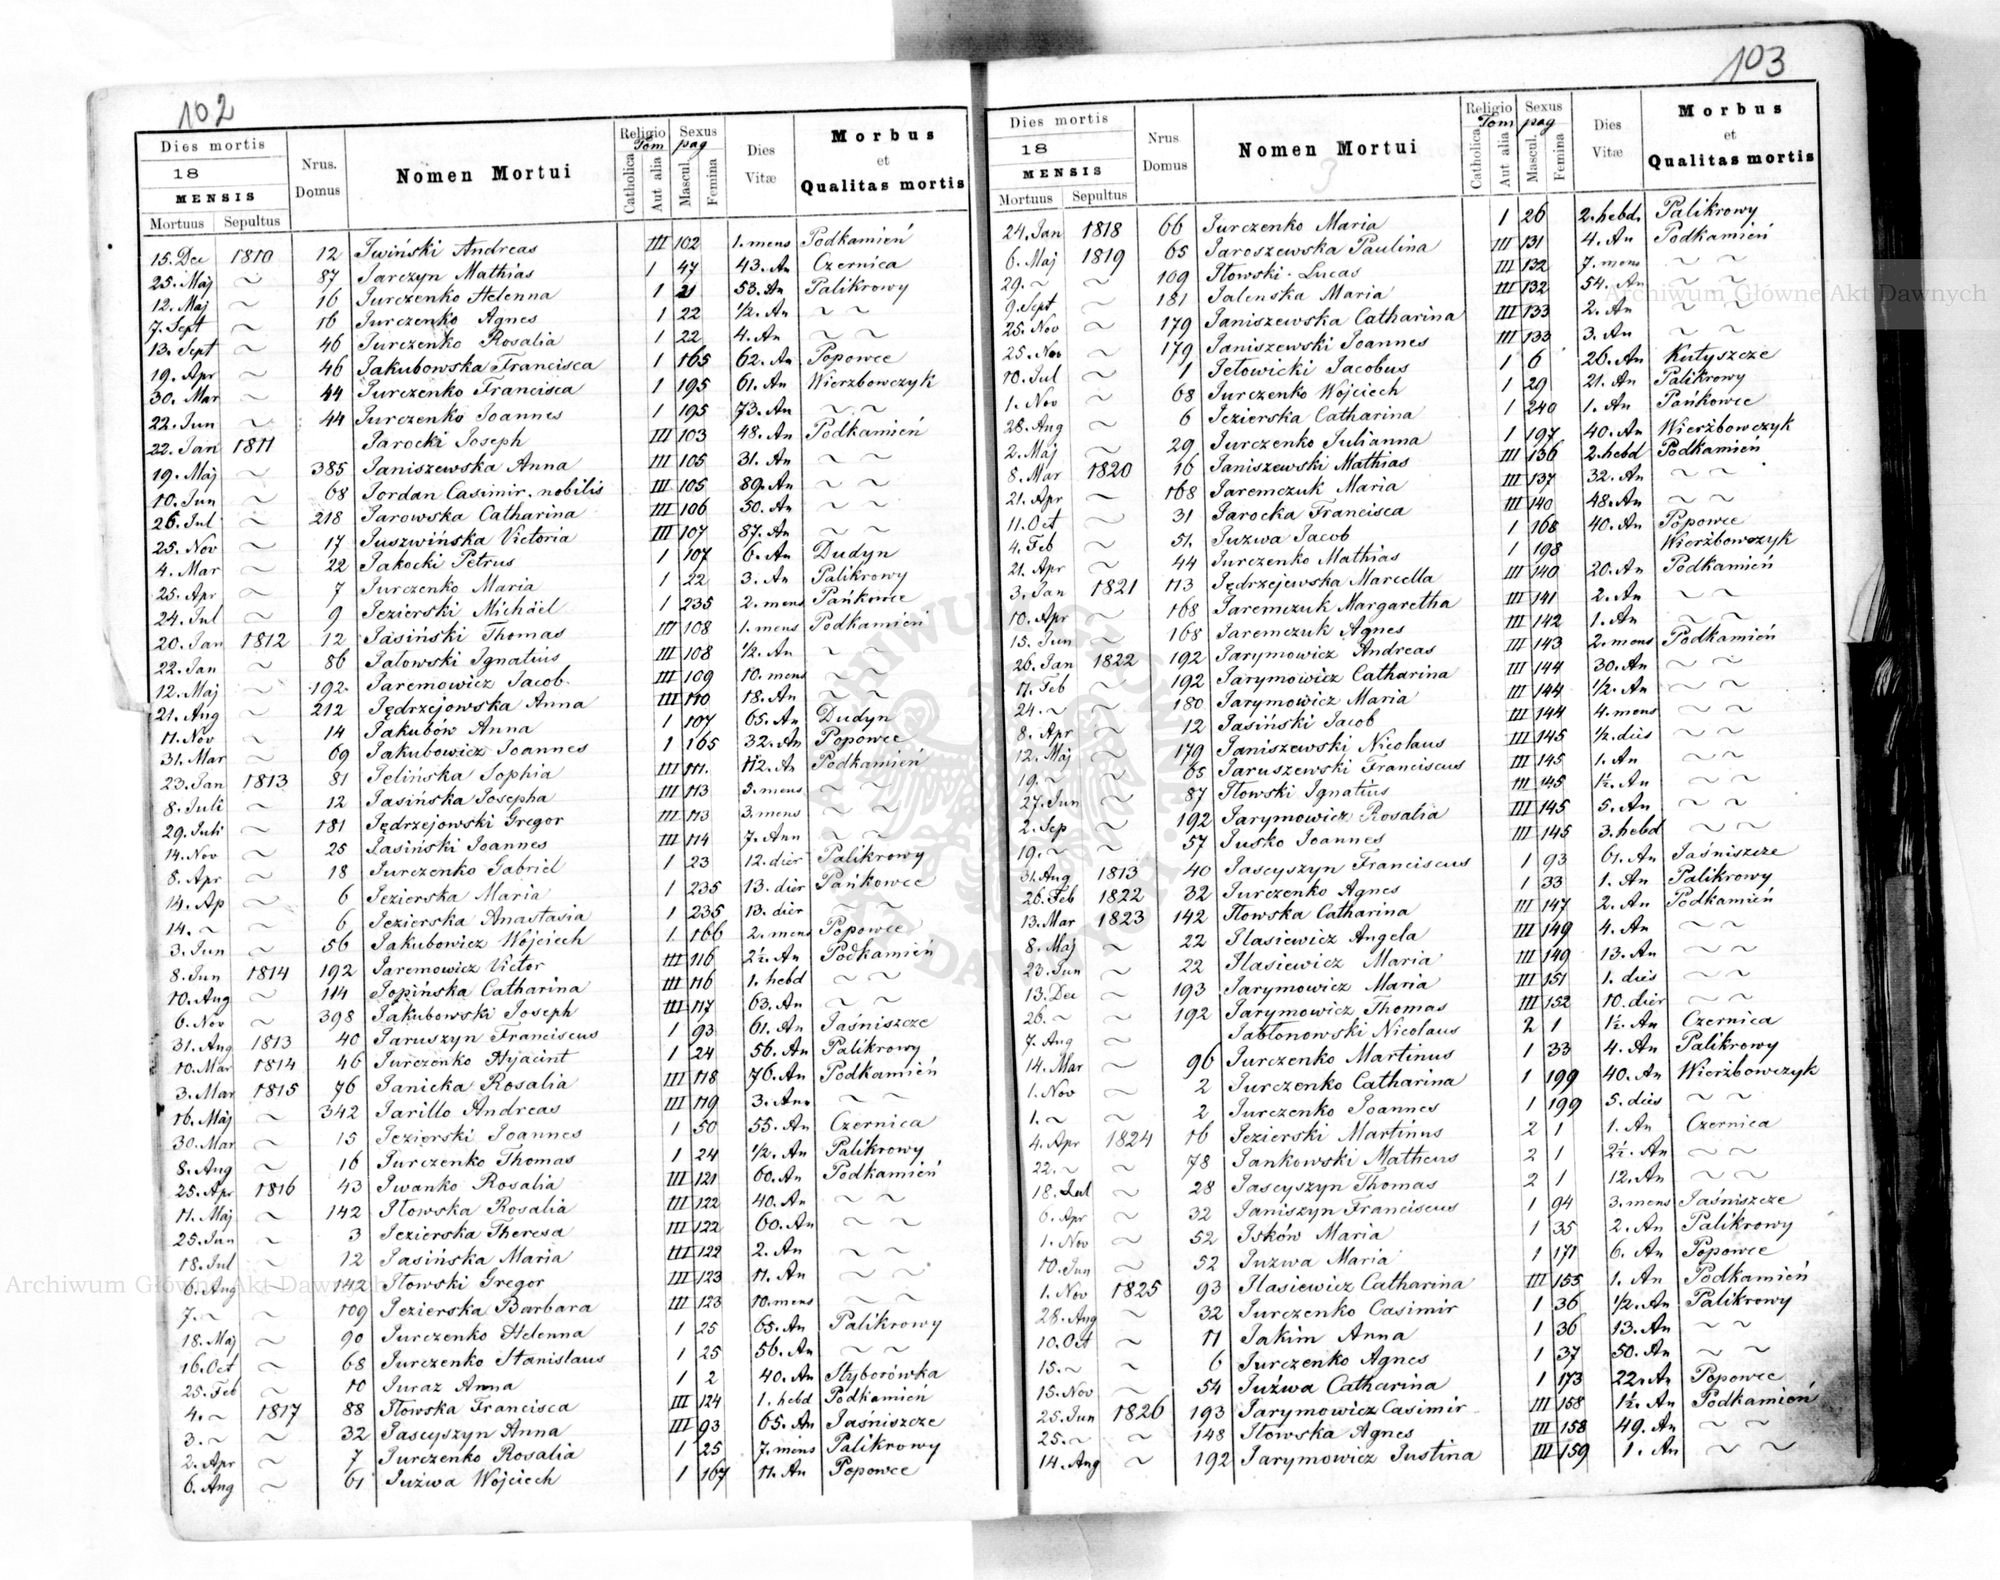 102
Dies mortis
18
MENSIS
Mortuus Sepultus
Nrus. Domus
Nomen Mortui
Religio Tom
Catholica
Aut alia
Sexus pag
Mascul.
Femina
Dies Vitæ
Morbus et Qualitas mortis
15. Dec 1810 12 Iwiński Andreas III 102 1. mens Podkamień
25. Maj ~ 87 Jarczyn Mathias 1 47 43. An Czernica
12. Maj ~ 16 Jurczenko Helenna 1 21 53. An Palikrowy
7. Sept ~ 16 Jurczenko Agnes 1 22 ½. An ~ ~
13. Sept ~ 46 Jurczenko Rosalia 1 22 4. An ~ ~
19. Apr ~ 46 Jakubowska Francisca 1 165 62. An Popowce
30. Mar ~ 44 Jurczenko Francisca 1 195 61. An Wierzbowczyk
22. Jun ~ 44 Jurczenko Joannes 1 195 73. An ~ ~
22. Jan 1811 Jarocki Joseph III 103 48. An Podkamień
19. Maj ~ 385 Janiszewska Anna III 105 31. An ~ ~
10. Jun ~ 68 Jordan Casimir. nobilis III 105 89. An ~ ~
26. Jul ~ 218 Jarowska Catharina III 106 50. An ~ ~
25. Nov ~ 17 Juszwińska Victoria III 107 87. An ~ ~
4. Mar ~ 22 Jakocki Petrus 1 107 6. An Dudyn
25. Apr ~ 7 Jurczenko Maria 1 22 3. An Palikrowy
24. Jul ~ 9 Jezierski Michäel 1 235 2. mens Pańkowce
20. Jan 1812 12 Jasiński Thomas III 108 1. mens Podkamień
22. Jan ~ 86 Jatowski Ignatius III 108 ½. An ~ ~
12. Maj ~ 192. Jaremowicz Jacob III 109 10. mens ~ ~
21. Aug ~ 212 Jędrzejowska Anna III 110 18. An ~ ~
11. Nov ~ 14 Jakubów Anna 1 107 65. An Dudyn
31. Mar ~ 69 Jakubowicz Joannes 1 165 32. An Popowce
23. Jan 1813 81 Jelińska Sophia III 111. 112. An Podkamień
8. Juli ~ 12 Jasińska Josepha III 113 3. mens ~ ~
29. Juli ~ 181 Jędrzejowski Gregor III 113 3. mens ~ ~
14. Nov ~ 25 Jasiński Joannes III 114 7. Ann ~ ~
8. Apr ~ 18 Jurczenko Gabriel 1 23 12. dier Palikrowy
14. Ap ~ 6 Jezierska Maria 1 235 13. dier Pańkowce
14. ~ ~ 6 Jezierska Anastasia 1 235 13. dier ~ ~
3. Jun ~ 56 Jakubowicz Wojciech 1. 166 2. mens Popowce
8. Jun 1814 192 Jaremowicz Victor III 116 2½. An Podkamień
10. Aug ~ 114 Jopińska Catharina III 116 1. hebd ~ ~
6. Nov ~ 398 Jakubowski Joseph III 117 63. An ~ ~
31. Aug 1813 40 Jaruszyn Franciscus 1 93 61. An Jaśniszcze
10. Mar 1814 46 Jurczenko Hyacint 1 24 56. An Palikrowy
3. Mar 1815 76 Janicka Rosalia III 118 76. An Podkamień
16. Maj ~ 342 Jarillo Andreas III 119 3. An ~ ~
30. Mar ~ 15 Jezierski Joannes 1 50 55. An Czernica
8. Aug ~ 16 Jurczenko Thomas 1 24 ½. An Palikrowy
25. Apr 1816 43 Iwanko Rosalia III 121 60. An Podkamień
11. Maj ~ 142 Iłowska Rosalia III 122 40. An ~ ~
25. Jun ~ 3 Jezierska Theresa III 122 60. An ~ ~
18. Jul ~ 12 Jasińska Maria III 122 2. An ~ ~
6. Aug ~ 142 Iłowski Gregor III 123 11. An ~ ~
7. ~ ~ 109 Jezierska Barbara III 123 10. mens ~ ~
18. Maj ~ 90 Jurczenko Helenna 1 25 65. An Palikrowy
16. Oct ~ 68 Jurczenko Stanislaus 1 25 56. An ~ ~
25. Feb ~ 10 Juraz Anna 1 2 40. An Styborówka
4. ~ 1817 88 Iłowska Francisca III 124 1. hebd Podkamień
3. ~ ~ 32 Jascyszyn Anna III 93 65. An Jaśniszcze
2. Apr ~ 7 Jurczenko Rosalia 1 25 7. mens Palikrowy
6. Aug ~ 61 Juźwa Wojciech 1 167 11. An Popowce
103
Dies mortis
18
MENSIS
Mortuus Sepultus
Nrus Domus
Nomen Mortui
3
Religio Tom
Catholica
Aut alia
Sexus pag
Mascul.
Femina
Dies Vitæ
Morbus et Qualitas mortis
24. Jan 1818 66 Jurczenko Maria 1 26 2. hebd. Palikrowy
6. Maj 1819 65 Jaroszewska Paulina III 131 4. An Podkamień
29. ~ ~ 109 Iłowski Lucas III 132 7. mens ~ ~
9. Sept ~ 181 Jalenska Maria III 132 54. An ~ ~
25. Nov ~ 179 Janiszewska Catharina III 133 2. An ~ ~
25. Nov ~ 179 Janiszewski Joannes III 133 3. An ~ ~
10. Jul ~ 1 Jełowicki Jacobus 1 6 26. An Kutyszcze
1. Nov ~ 68 Jurczenko Wojciech 1 29 21. An Palikrowy
28. Aug ~ 6 Jezierska Catharina 1 240 1. An Pańkowce
2. Maj ~ 29 Jurczenko Julianna 1 197 40. An Wierzbowczyk
8. Mar 1820 16 Janiszewski Mathias III 136 2. hebd Podkamień
21. Apr ~ 168 Jaremczuk Maria III 137 32. An ~ ~
11. Oct ~ 31 Jarocka Francisca III 140 48. An ~ ~
4. Feb ~ 51. Juzwa Jacob 1 168 40. An Popowce
21. Apr ~ 44 Jurczenko Mathias 1 198 Wierzbowczyk
3. Jan 1821 113 Jędrzejewska Marcella III 140 20. An Podkamień
10. Apr ~ 168 Jaremczuk Margaretha III 141 2. An ~ ~
15. Jun ~ 168 Jaremczuk Agnes III 142 1. An ~ ~
26. Jan 1822 192 Jarymowicz Andreas III 143 2. mens Podkamień
11. Feb ~ 192 Jarymowicz Catharina III 144 30. An ~ ~
24. ~ ~ 180 Jarymowicz Maria III 144 ½. An ~ ~
8. Apr ~ 12 Jasiński Jacob III 144 4. mens ~ ~
12. Maj ~ 179 Janiszewski Nicolaus III 145 ½. dies ~ ~
19. ~ ~ 65 Jaruszewski Franciscus III 145 1. An ~ ~
27. Jun ~ 87 Iłowski Ignatius III 145 1½. An ~ ~
2. Sep ~ 192 Jarymowicz Rosalia III 145 5. An ~ ~
19. ~ ~ 57 Jusko Joannes III 145 3. hebd ~ ~
31. Aug 1813 40 Jascyszyn Franciscus 1 93 61. An Jaśniszcze
26. Feb 1822 32 Jurczenko Agnes 1 33 1. An Palikrowy
13. Mar 1823 142 Iłowska Catharina III 147 2. An Podkamień
8. Maj ~ 22 Ilasiewicz Angela III 149 4. An ~ ~
23. Jun ~ 22 Ilasiewicz Maria III 149 13. An ~ ~
13. Dec ~ 193 Jarymowicz Maria III 151 1. dies ~ ~
26. ~ ~ 192 Jarymowicz Thomas III 152 10. dier ~ ~
7. Aug ~ Jabłonowski Nicolaus 2 1 1½. An Czernica
14. Mar ~ 96 Jurczenko Martinus 1 33 4. An Palikrowy
1. Nov ~ 2 Jurczenko Catharina 1 199 40. An Wierzbowczyk
1. ~ ~ 2 Jurczenko Joannes 1 199 5. dies ~ ~
4. Apr 1824 16 Jezierski Martinus 2 1 1. An Czernica
22. ~ ~ 78 Jankowski Matheus 2 1 2½. An ~ ~
18. Jul ~ 28 Jascyszyn Thomas 2 1 12. An ~ ~
6. Apr ~ 32 Janiszyn Franciscus 1 94 3. mens Jaśniszcze
1. Nov ~ 52 Isków Maria 1 35 2. An Palikrowy
10. Jun ~ 52 Juzwa Maria 1 171 6. An Popowce
1. Nov 1825 93 Ilasiewicz Catharina III 155 1. An Podkamień
28. Aug ~ 32 Jurczenko Casimir 1 36 ½. An Palikrowy
10. Oct ~ 11 Jakim Anna 1 36 13. An ~ ~
15. ~ ~ 6 Jurczenko Agnes 1 37 50. An ~ ~
15. Nov ~ 54 Juźwa Catharina 1 173 22. An Popowce
25. Jun 1826 193 Jarymowicz Casimir III 158 1½. An Podkamień
25. ~ ~ 148 Iłowska Agnes III 158 49. An ~ ~
14. Aug ~ 192 Jarymowicz Justina III 159 1. An ~ ~
Archiwum Główne Akt Dawnych
Archiwum Główne Akt Dawnych